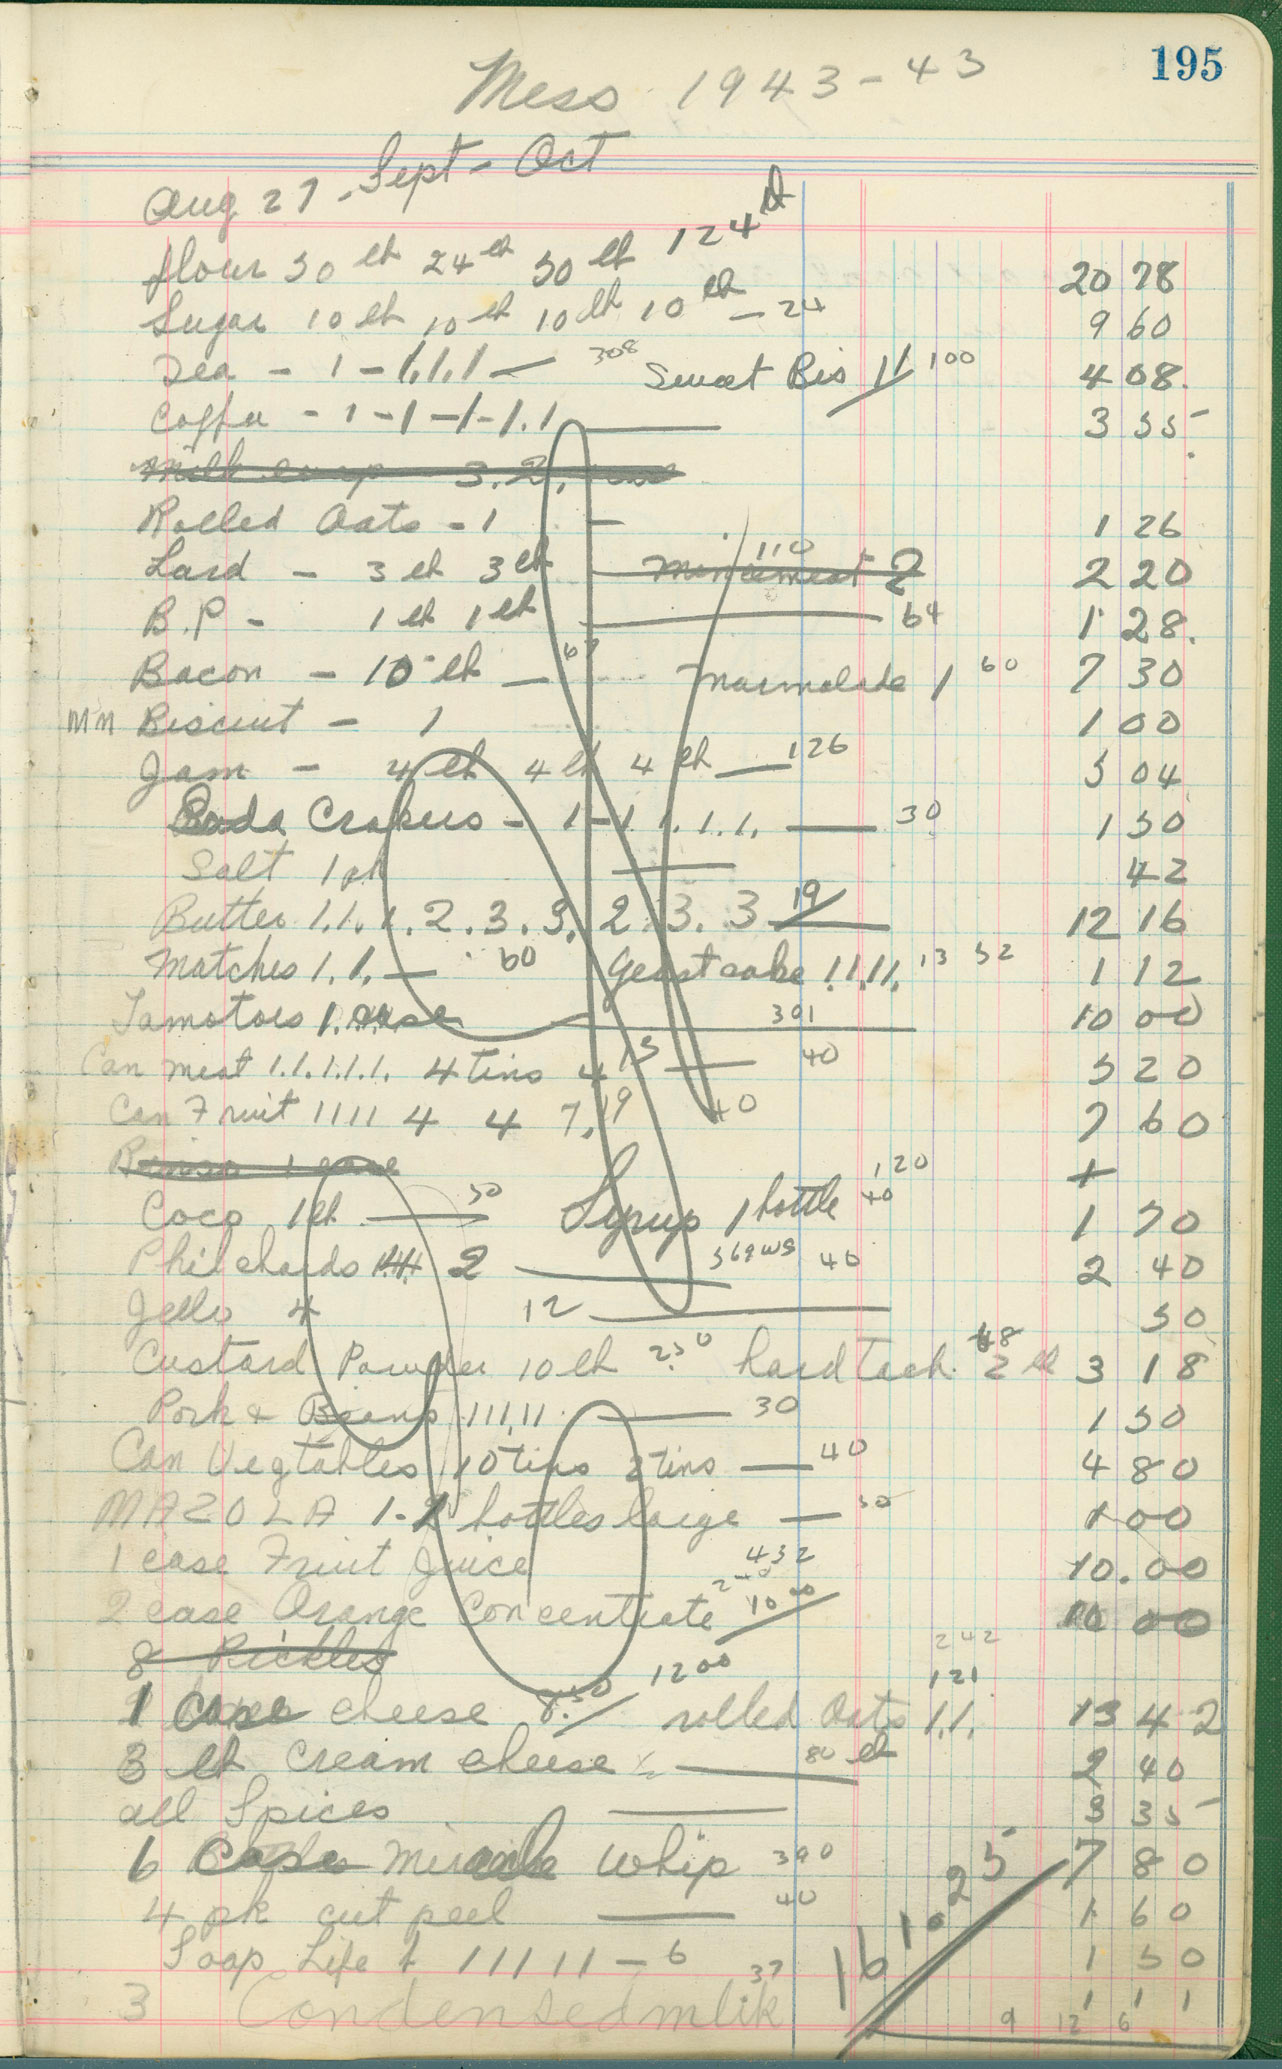 195
Mess 1943-43
Aug 27 - Sept - Oct
flour 50 lb 24 lb 50 lb 124 lb 20 78
Sugar 10 lb 10 lb 10 lb 10 lb - 24 9 60
Tea - 1 - 1.1.1 - 308 Sweat Bis 11 100 4 08.
Coffa - 1 - 1 - 1 - 1. 1 3 55
Milk 3. 2.
Rolled Oats - 1 - 1 26
Lard - 3 lb 3 lb Mincemeat 2 110 2 20
B.P - 1 lb 1 lb 64 1 28.
Bacon - 10 lb - 67 Marmelade 1 60 7 30
MM Biscuit - 1 1 00
Jam - 4 lb 4 lb 4 lb - 126 5 04
Soda Crakers - 1 - 1 1. 1. 1. - 30 1 50
Salt 1 pk 42
Butter 1. 1. 1. 2. 3. 3. 2. 3. 3 19 12 16
Matches 1. 1. - 60 Yeast cake 1.1.1.1. 13 52 1 12
Tamotoes 1. case 301 10 00
Can meat 1.1.1.1.1. 4 Tins 4 13 - 40 5 20
Can Fruit 1111 4 4 7. 19 40 7 60
1 case
Coco 1 lb - 50 Syrup 1 bottle 120 40 1 70
Philchards 2 40 2 40
Jello 4 12 50
Custard Powder 10 lb 2.50 hard tack 48 2 lb 3 18
Pork & Beans 11111 - 30 1 50
Can Vegtables 10 tins 2 tins - 40 4 80
MAZOLA 1-2 bottles large - 50 1 00
1 case Fruit Juice 432 10.00
2 case Orange Concentrate 10 00 10 00
8 Pickles 242
1 case cheese 8.50 1200 rolled Oats 1.1. 121 13 42
3 lb Cream cheese - 80 lb 2 40
all Spices 3 35
6 Miracle Whip 390 7 80
4 pk cut peel - 40 1 60
Soap Life 1 11111 - 6 1 50
3 Condensedmlik 37 1 1 1
16 10 25
9 12 6